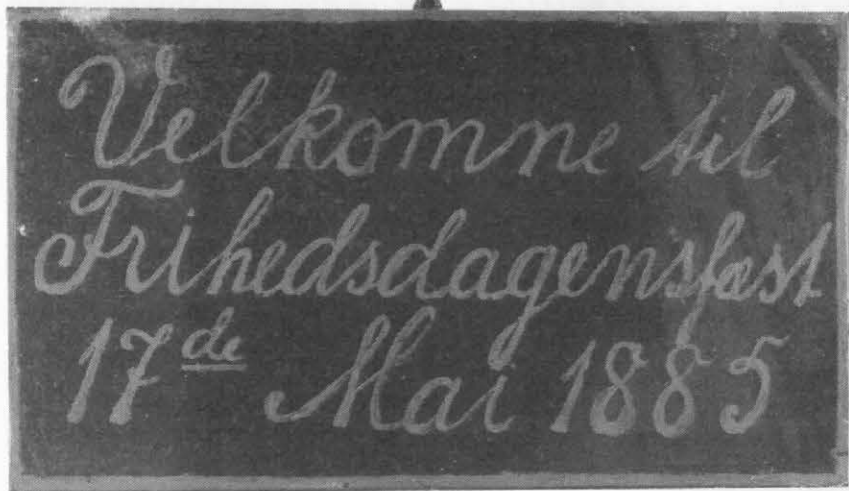 Velkomne til
Frihedsdagensfæst
17de Mai 1885